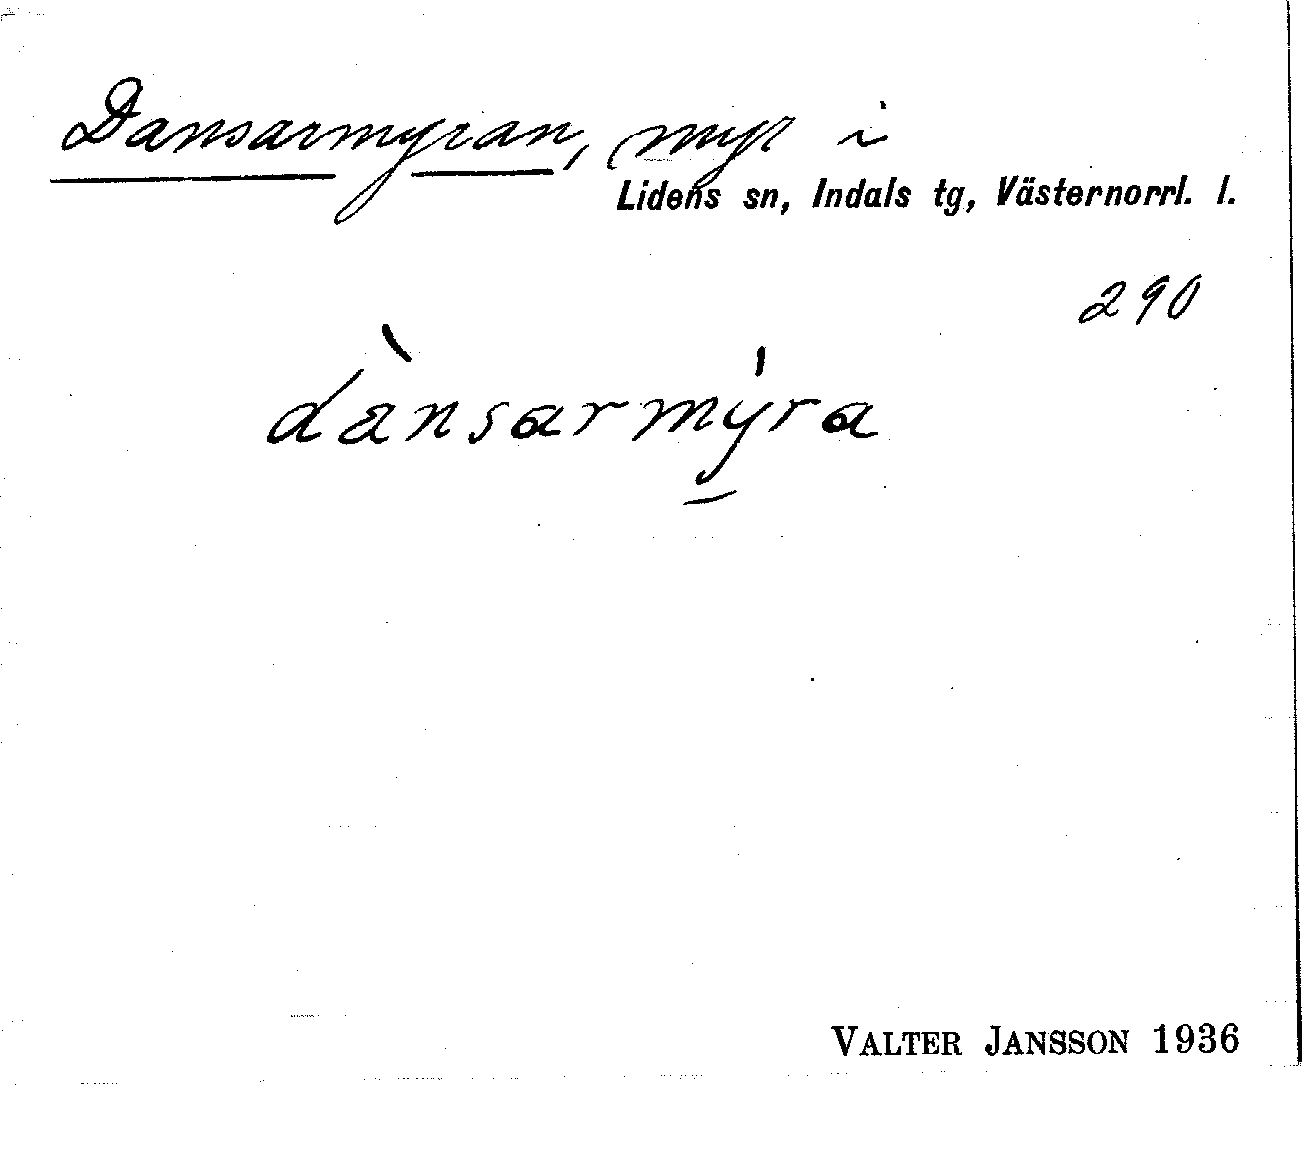 Dansarmyran, myr i
Lidens sn, Indals tg, Västernorrl. l.
290
dànsarmý̱ra
VALTER JANSSON 1936